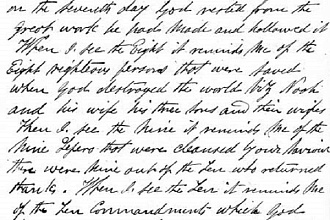 on the seventh day God rested from the
great work he had made and hallowed it
When I see the Eight it reminds me of the
Eight righteous persons that were saved
when God destroyed the world viz Noah
and his wife his three sons and their wifes
When I see the Nine it reminds me of the
Nine lepers that were cleansed
there were Nine out of the Ten who returned
thanks. When I see the Ten it reminds me
of the Ten Commandments which God